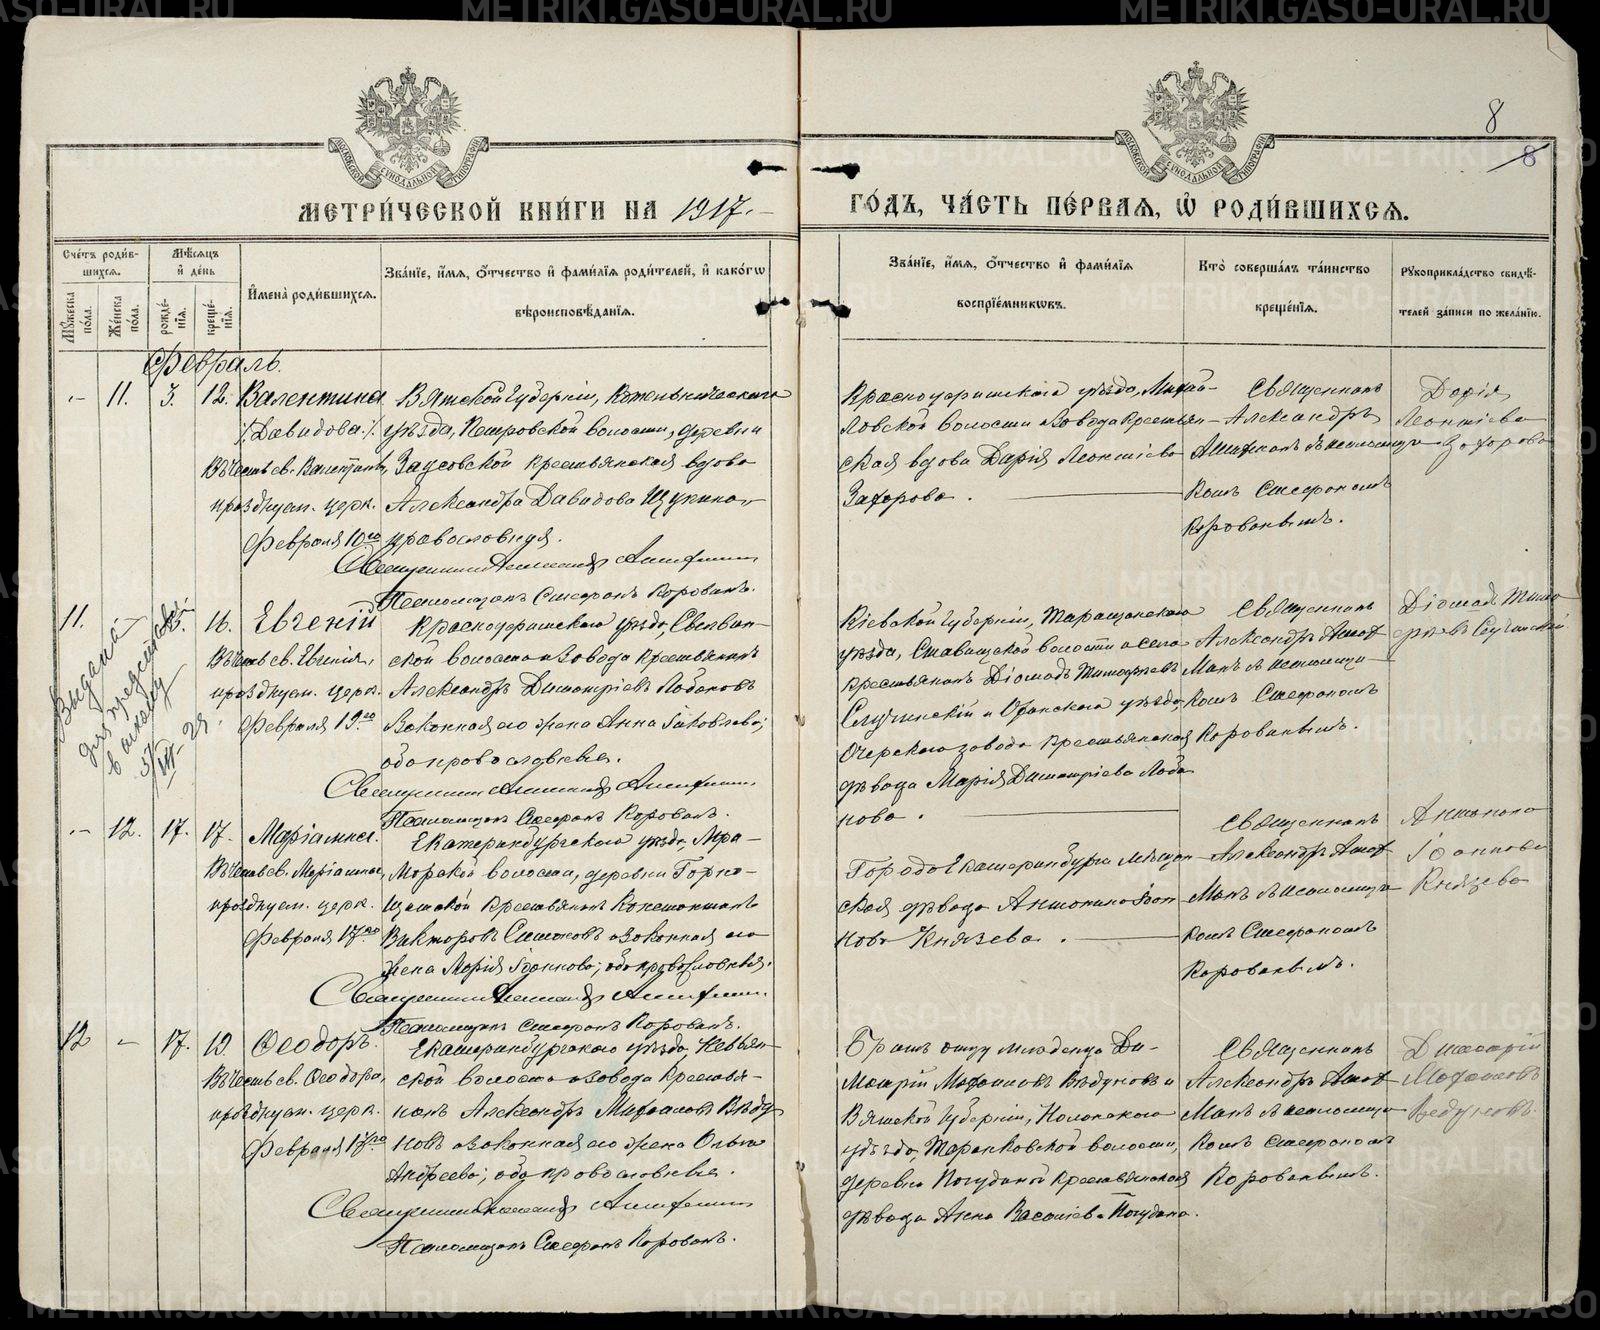 METRIKI.GASO-URAL.RU
8
8
МОСКОВСКОЙ СѴНОДАЛЬНОЙ ТИПОГРАФІИ
МОСКОВСКОЙ СѴНОДАЛЬНОЙ ТИПОГРАФІИ
МЕТРИ́ЧЕСКОЙ КНИ́ГИ НА 1917.
ГО́ДЪ, ЧА́СТЬ ПЕ́РВАѦ, Ѡ҆ РОДИ́ВШИХСѦ.
Сче́тъ роди́в-
шихсѧ.
Мѣ́сѧцъ
и҆ де́нь
Мꙋ́жеска по́ла.
Же́нска по́ла.
рожде́-
нїѧ.
креще́-
нїѧ.
И҆мена̀ роди́вшихсѧ.
Зва́нїе, и҆́мѧ, ѻ҆́тчество и҆ фами́лїѧ роди́телей, и҆ како́гѡ
вѣроисповѣ́данїѧ.
Зва́нїе, и҆́мѧ, ѻ҆́тчество и҆ фами́лїѧ
воспрїе́мникѡвъ.
Кто̀ соверша́лъ та́инство
креще́нїѧ.
Рꙋкоприкла́дство свидѣ́-
телей за́писи по жела́нїю.
Февраль.
– 11. 3. 12.
Валентина
/Давидова/.
Въ честь св. Валентины,
празднуем. церк.
Февраля 10го
Вятской губерніи, Котельническаго
уѣзда, Петровской волости, деревни
Зауевской крестьянская вдова
Александра Давидова Щукина,
православная.
Священникъ Александръ Анифиновъ
Псаломщикъ Стефанъ Корованъ.
Красноуфимскаго уѣзда, Михай-
ловской волости и завода крестьян-
ская вдова Дарія Леонтіева
Захарова.
Священникъ
Александръ
съ псаломщи-
комъ Стефаномъ
Корованымъ.
Дарія
Леонтіева
Захарова
11. 16.
Выдана
для представленія
в школу
Евгеній
Въ честь св. Евгенія,
празднуем. церк.
Февраля 19го
Красноуфимскаго уѣзда,
ской волости и завода крестьянинъ
Александръ Димитріевъ Лобановъ
и законная его жена Анна Іаковлева;
оба православные.
Священникъ Александръ Анифиновъ
Псаломщикъ Стефанъ Корованъ.
Кіевской губерніи, Таращанскаго
уѣзда, Ставищской волости и села
крестьянинъ Діомидъ Тимофеевъ
Слуцинскій и Оханскаго уѣзда,
Очерскаго завода крестьянская
дѣвица Марія Димитріева Лоба-
нова.
Священникъ
Александръ
съ псаломщи-
комъ Стефаномъ
Корованымъ.
Діомидъ Тимо-
феевъ Слуцинскій
– 12. 17. 17.
Маріамна.
Въ честь св. Маріамны,
празднуем. церк.
Февраля 17го
Екатеринбургскаго уѣзда, Мра-
морской волости, деревни Горно-
щитской крестьянинъ Константинъ
Викторовъ Симоновъ и законная его
жена Марія Іоаннова; оба православные.
Священникъ Александръ Анифиновъ
Псаломщикъ Стефанъ Корованъ.
Города Екатеринбурга мѣщан-
ская дѣвица Антонина Іоан-
нова Князева.
Священникъ
Александръ
съ псаломщи-
комъ Стефаномъ
Корованымъ.
Антонина
Іоаннова
Князева
12 – 17. 19.
Ѳеодоръ.
Въ честь св. Ѳеодора,
празднуем. церк.
Февраля 17го
Екатеринбургскаго уѣзда, Невьян-
ской волости и завода крестья-
нинъ Александръ Маѳаиловъ Вѣду-
новъ и законная его жена Ольга
Андреева; оба православные.
Священникъ Александръ Анифиновъ
Псаломщикъ Стефанъ Корованъ.
Братъ отцу младенца Ди-
митрій Вѣдуновъ и
Вятской губерніи,
уѣзда, волости,
деревни крестьянская
дѣвица Анна Васильева
Священникъ
Александръ
съ псаломщи-
комъ Стефаномъ
Корованымъ.
Димитрій
Вѣдуновъ.